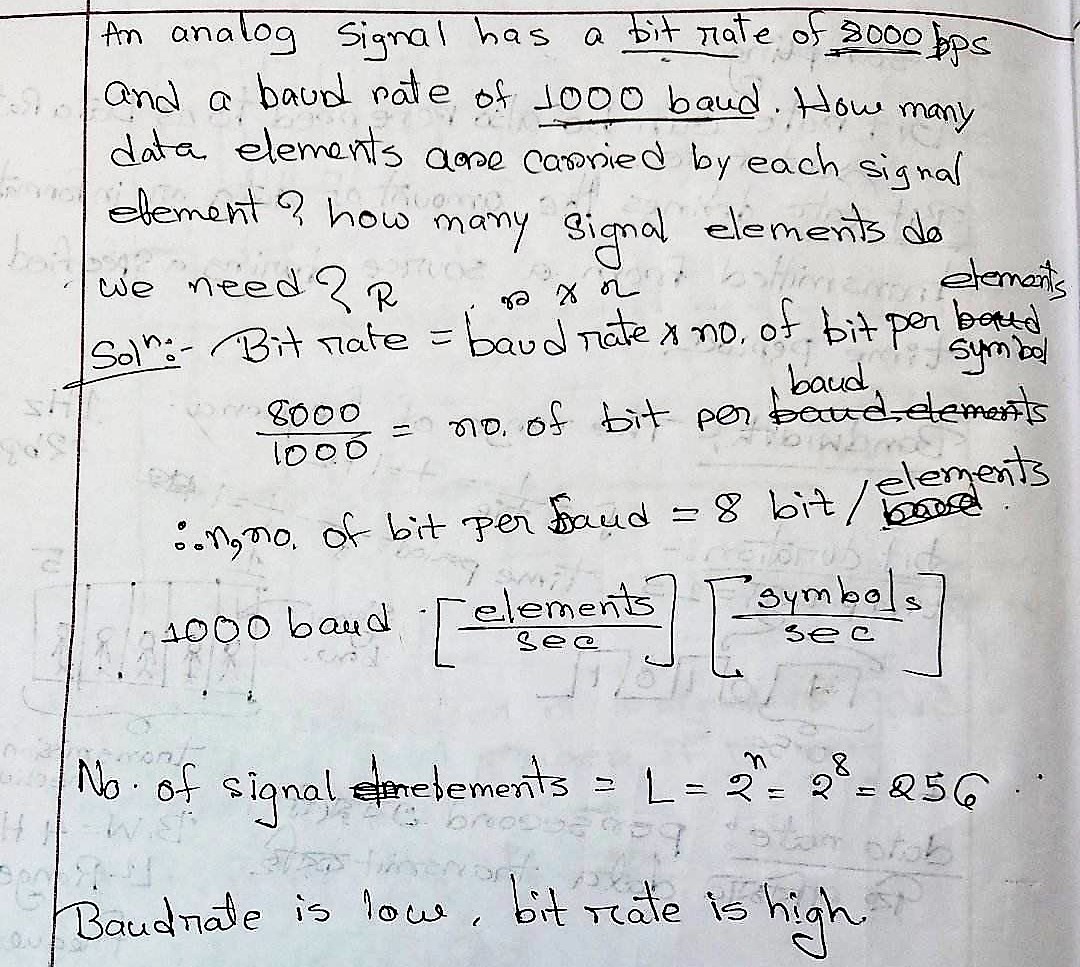 An analog signal has a bit rate of 8000 bps
and a baud rate of 1000 baud. How many
data elements are carried by each signal
element? how many signal elements do
we need?
R r x n elements
Soln:- Bit rate = baud rate x no. of bit per baud
symbol
baud
8000/1000 = no. of bit per baud elements
elements
∴ n, no. of bit per baud = 8 bit/baud.
1000 baud [elements/sec] [symbols/sec]
No. of signal elements = L = 2^n = 2^8 = 256
Baudrate is low, bit rate is high